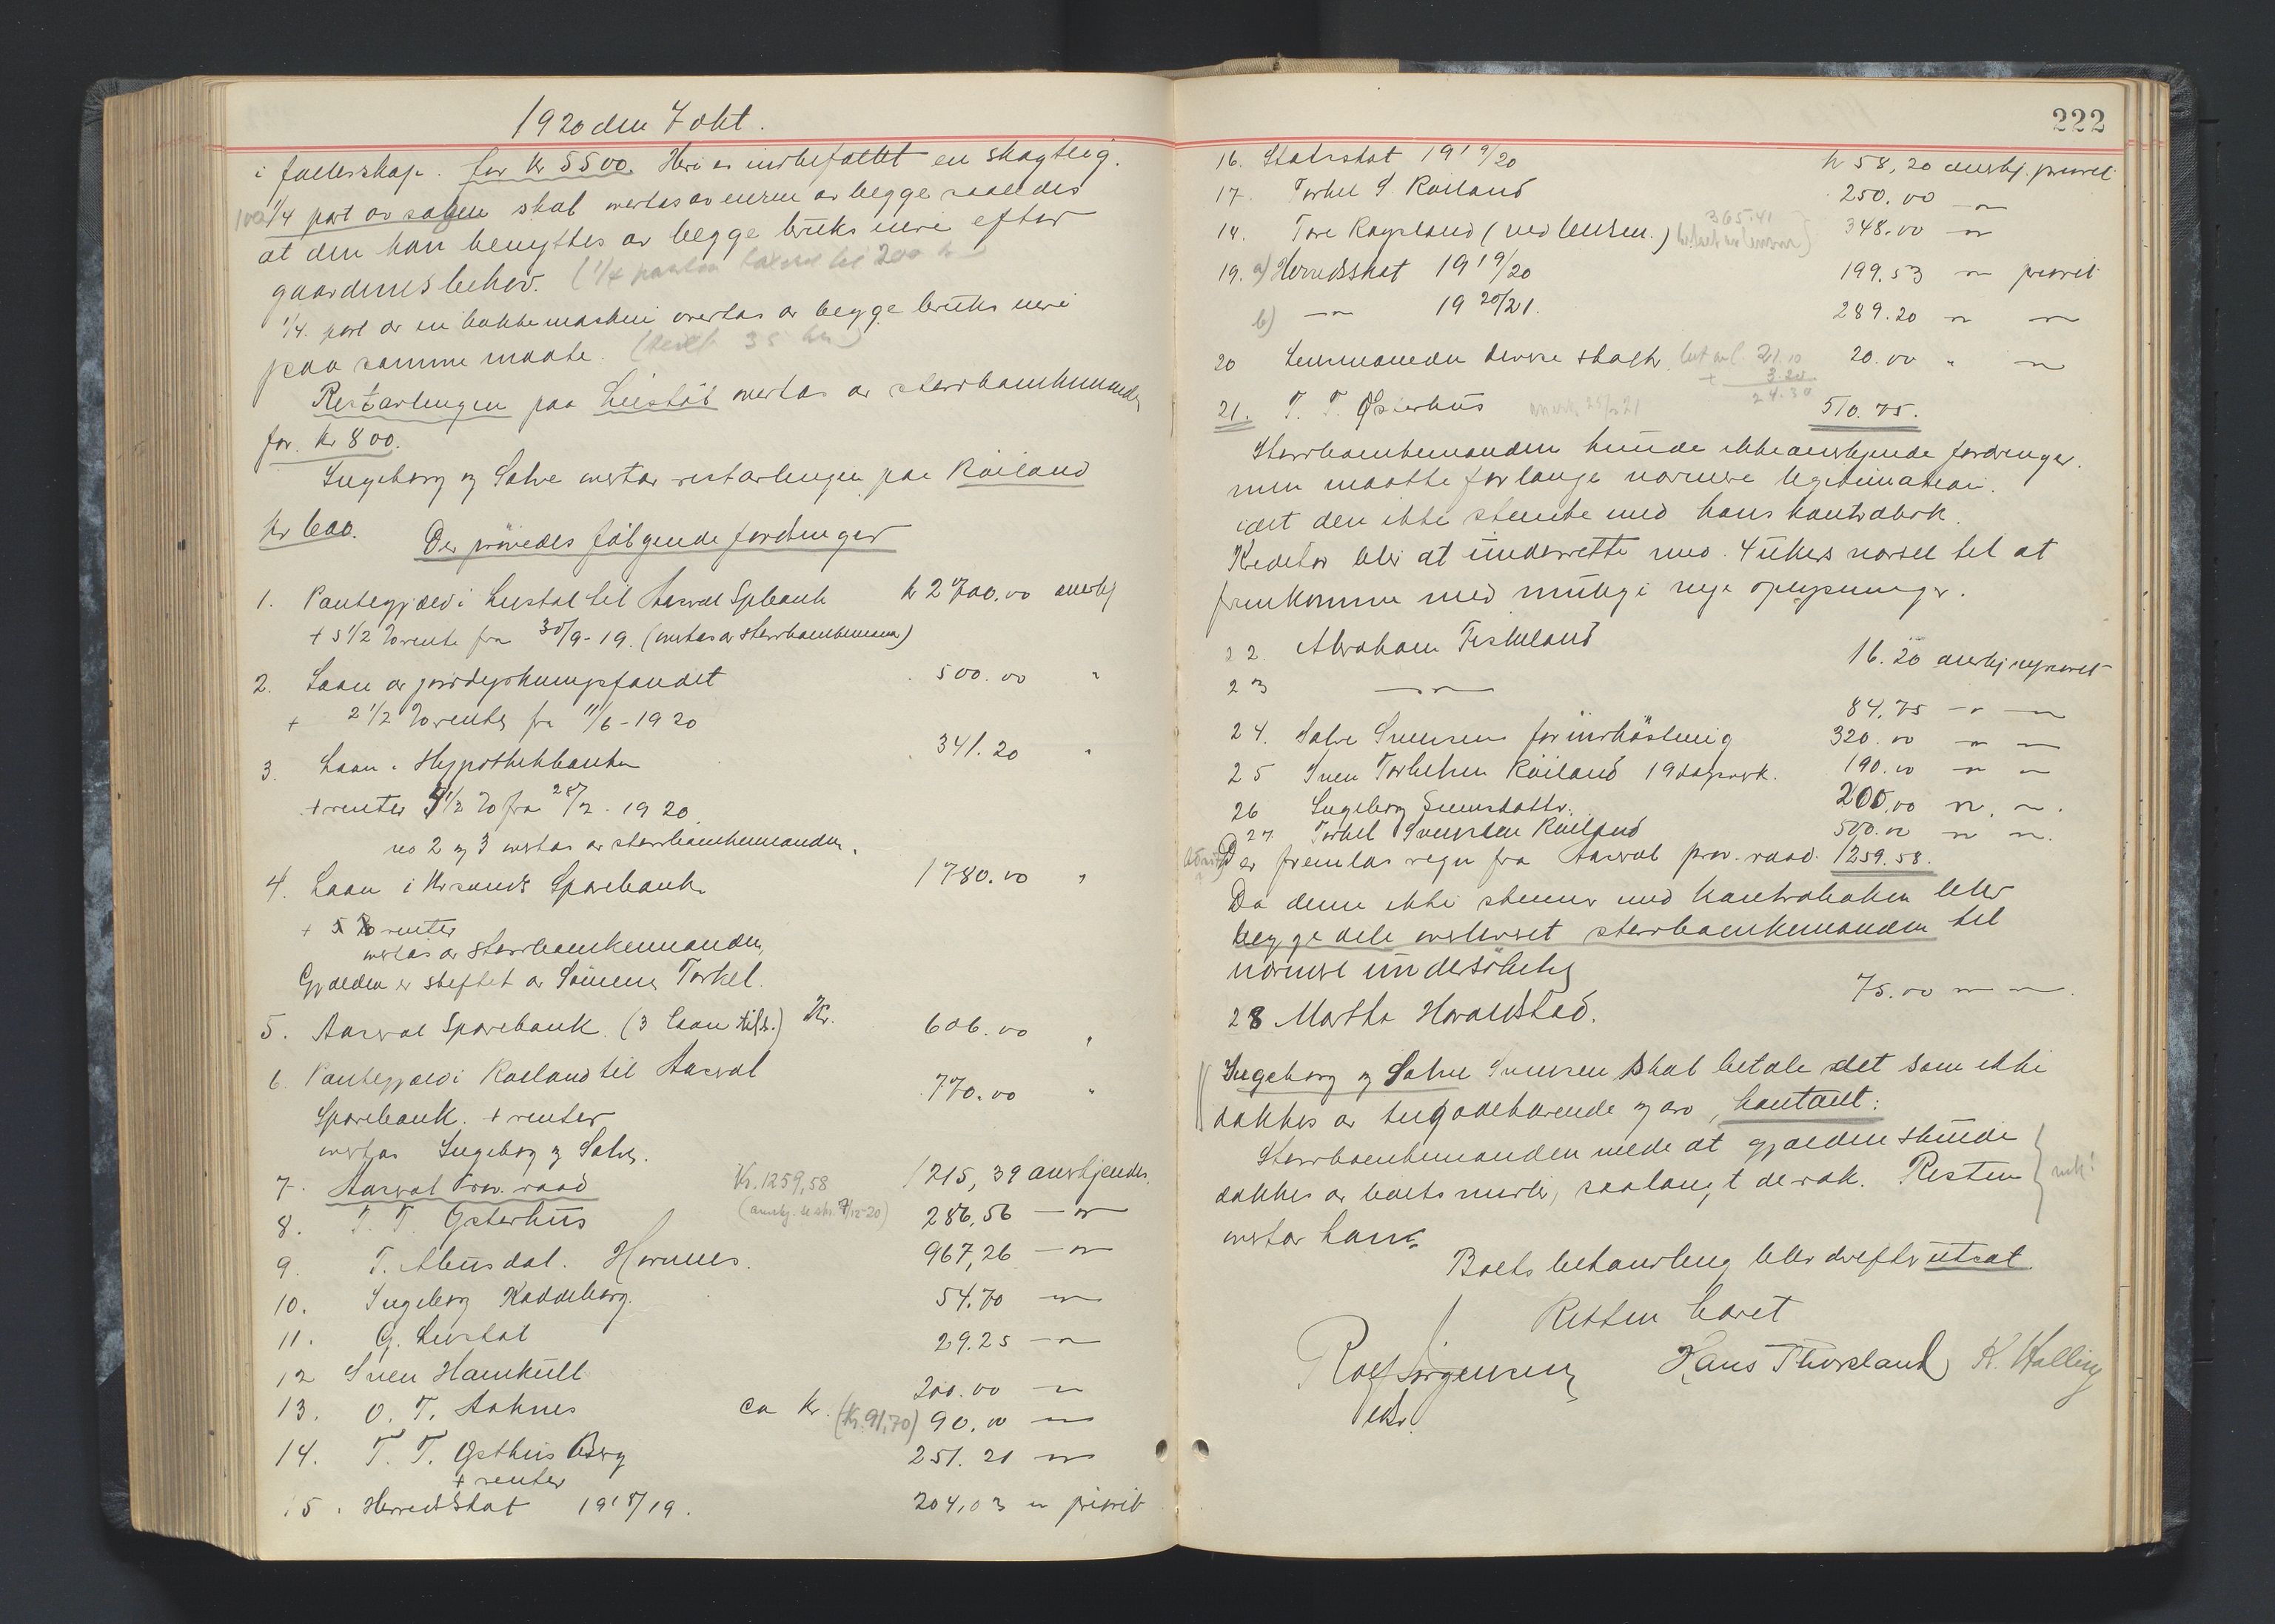 1920 den 7 okt.
i fællesskap. for Kr 5500. Heri er indbefattet en skogteig.
1/4 part av sagen skal overtas av enken av begge saaledes
at den kan benyttes av begge bruks eiere efter
gaardenes behov. (1/4 part 200 kr
1/4 part av en bakkemaskin overtas av begge bruks eiere
paa samme maate. ( 35 kr)
Restavlingen paa Liestøl overtas av sterboenkemanden
for. Kr 800.
Ingeborg og Salve overtar restavlingen paa Röiland
Kr 600. Der prövedes fölgende fordringer
1. Pantegjæld i Liestøl til Aaseral Spbank kr 2700.00 anerkj
+ 5 1/2 % rente fra 30/9-19. (overtas av sterboenkeman)
2. Laan av jorddyrkningsfondet 500.00 "
+ 2 1/2 % renter fra 11/6-1920
3. Laan i Hypothekbanken 341.20 "
+ renter 4 1/2 % fra 28/2-1920
no 2 og 3 overtas av sterboenkemanden.
4. Laan i Krsands Sparebank 1780.00 "
+ 5 % renter
overtas av sterboenkemanden.
Gjælden er stiftet av Sönnen Torkel.
5. Aaseral Sparebank (3 laan tils.) Kr. 606.00 "
6. Pantegjæld i Röiland til Aaseral 770.00 "
Sparebank. + renter
overtas Ingeborg og Salve.
7. Aaseral Prov. raad Kr. 1259,58 1215,39 anerkjendes.
8. T. T. Østerhus (anerkj. 7/12-20) 286,56 — " —
9. T. Abusdal. Hornnes. 967,26 — " —
10. Ingeborg Kaddeberg. 54.70 — " —
11. G. Liestøl 29.25 — " —
12 Sven Hamkoll 200.00 — " —
13. O. T. Aaknes ca kr. (Kr. 91,70) 90.00 — " —
14. T. T. Østhus Bserg 251.21 — " —
+ renter
15. Herredskat 1918/19. 204,03 " priorit
222
16. Statsskat 1919/20 kr 58,20 anerkj. priorit
17. Torkel S. Röiland 250.00 — " —
18. Tore Røysland (ved lensm.) 365.41 348.00 — " —
19. a) Herredsskat 1919/20 199.53 — " — priorit
b) — " — 1920/21. 289.20 " — " —
20 Lensmanden diverse skatter 21.10 20.00 " — " —
+ 3.20
24.30
21. T. T. Østerhus 510.75.
Sterboenkemanden kunde ikke anerkjende fordringer.
men maatte forlange nærmere legitimation.
idet den ikke stemte med hans kontrabok.
Kreditor blir at underrette med 4 ukers varsel til at
fremkomme med mulige nye oplysninger.
22. Abraham Fiskeland 16.20 anerkj upriorit
23 — " — 84.75 — " — " —
24. Salve Svensen for indhöstning 320.00 — " — " —
25 Sven Torkelsen Röiland 19 dagsverk. 190.00 — " — " —
26 Ingeborg Svensdatter. 200.00 " — " —
27. Torkel Svensen Röiland 500.00 — " — " —
Der fremlas regn fra Aaseral prov. raad. 1259.58.
Da denne ikke stemmer med kontraboken blir
begge dele overlevert sterboenkemanden til
nærmere undersökelse
28 Martha Haraldstad. 75.00 — " — " —
Ingeborg og Salve Svensen skal betale det som ikke
dækkes av tilgodehavende og arv, kontant.
Sterboenkemanden mente at gjælden skulde
dækkes av boets midler, saalangt de rak. Resten
overtar han.
Boets behandling blir derefter utsat
Retten hævet
Rolf Jörgensen Hans Thorsland K. Halling